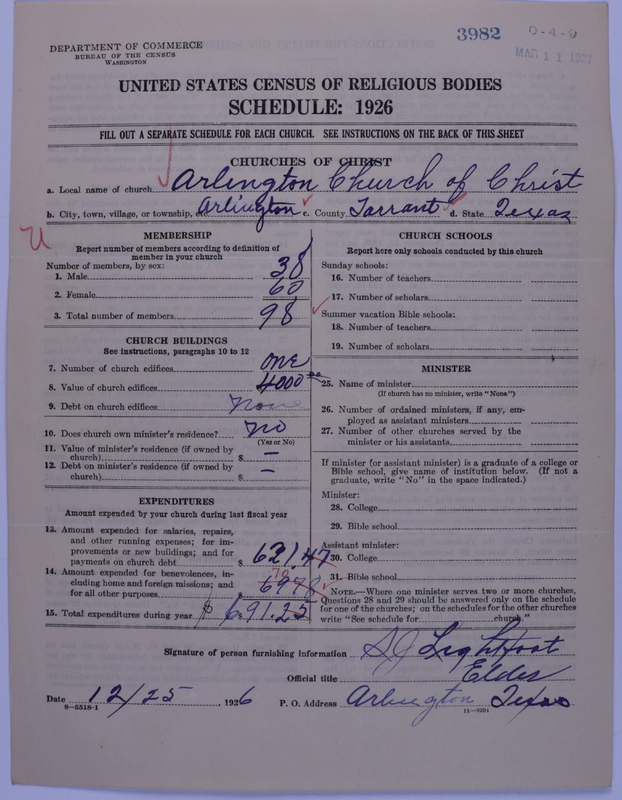 3982 0-4-9
MAR 11 1927
DEPARTMENT OF COMMERCE
BUREAU OF THE CENSUS
WASHINGTON
UNITED STATES CENSUS OF RELIGIOUS BODIES
SCHEDULE: 1926
FILL OUT A SEPARATE SCHEDULE FOR EACH CHURCH. SEE INSTRUCTIONS ON THE BACK OF THIS SHEET
CHURCHES OF CHRIST
a. Local name of church Arlington Church of Christ
b. City, town, village, or township, etc. Arlington c. County Tarrant d. State Texas
MEMBERSHIP
Report number of members according to definition of
member in your church
Number of members, by sex:
1. Male 38
2. Female 60
3. Total number of members 98
CHURCH BUILDINGS
See instructions, paragraphs 10 to 12
7. Number of church edifices one
8. Value of church edifices 4000 00
9. Debt on church edifices None
10. Does church own minister's residence? No
(Yes or No)
11. Value of minister's residence (if owned by
church) $ —
12. Debt on minister's residence (if owned by
church) $ —
EXPENDITURES
Amount expended by your church during last fiscal year
13. Amount expended for salaries, repairs,
and other running expenses; for im-
provements or new buildings; and for
payments on church debt $ 621.47
14. Amount expended for benevolences, in-
cluding home and foreign missions; and
for all other purposes 70 6978
15. Total expenditures during year $ 691.25
CHURCH SCHOOLS
Report here only schools conducted by this church
Sunday schools:
16. Number of teachers
17. Number of scholars
Summer vacation Bible schools:
18. Number of teachers
19. Number of scholars
MINISTER
25. Name of minister
(If church has no minister, write "None")
26. Number of ordained ministers, if any, em-
ployed as assistant ministers
27. Number of other churches served by the
minister or his assistants
If minister (or assistant minister) is a graduate of a college or
Bible school, give name of institution below. (If not a
graduate, write "No" in the space indicated.)
Minister:
28. College
29. Bible school
Assistant minister:
30. College
31. Bible school
NOTE.—Where one minister serves two or more churches,
Questions 28 and 29 should be answered only on the schedule
for one of the churches; on the schedules for the other churches
write "See schedule for church."
Signature of person furnishing information S J Lightfoot
Official title Elder
Date 12/25, 1926 P. O. Address Arlington Texas
8-5518-1 11-9204